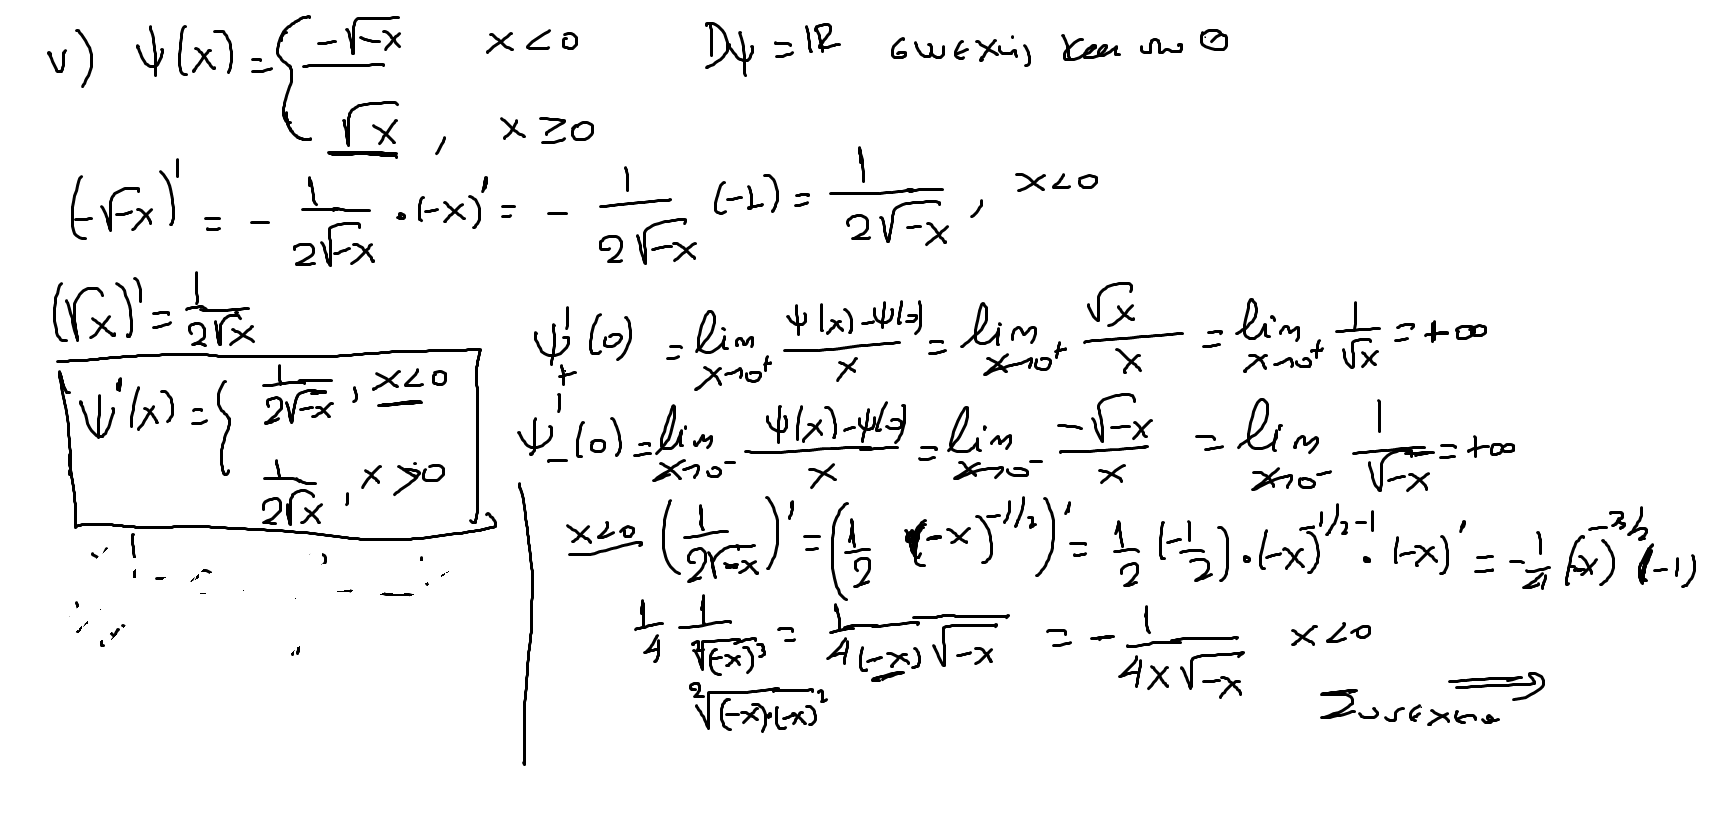 v) ψ(x) = { -√-x x<0 Dψ = ℝ συνεχής και στο 0
√x , x≥0
(-√-x)' = - 1/(2√-x) · (-x)' = - 1/(2√-x) (-1) = 1/(2√-x) , x<0
(√x)' = 1/(2√x)
ψ'₊(0) = lim x→0⁺ (ψ(x)-ψ(0))/x = lim x→0⁺ √x/x = lim x→0⁺ 1/√x = +∞
ψ'(x) = { 1/(2√-x) , x<0
1/(2√x) , x>0
ψ'₋(0) = lim x→0⁻ (ψ(x)-ψ(0))/x = lim x→0⁻ -√-x/x = lim x→0⁻ 1/√-x = +∞
x<0 (1/(2√-x))' = (1/2 (-x)^(-1/2))' = 1/2 (-1/2) · (-x)^(-1/2-1) · (-x)' = -1/4 (-x)^(-3/2) (-1)
1/4 1/²√(-x)³ = 1/(4(-x)√-x) = - 1/(4x√-x) x<0
²√(-x)·(-x)² Συνέχεια ⇒